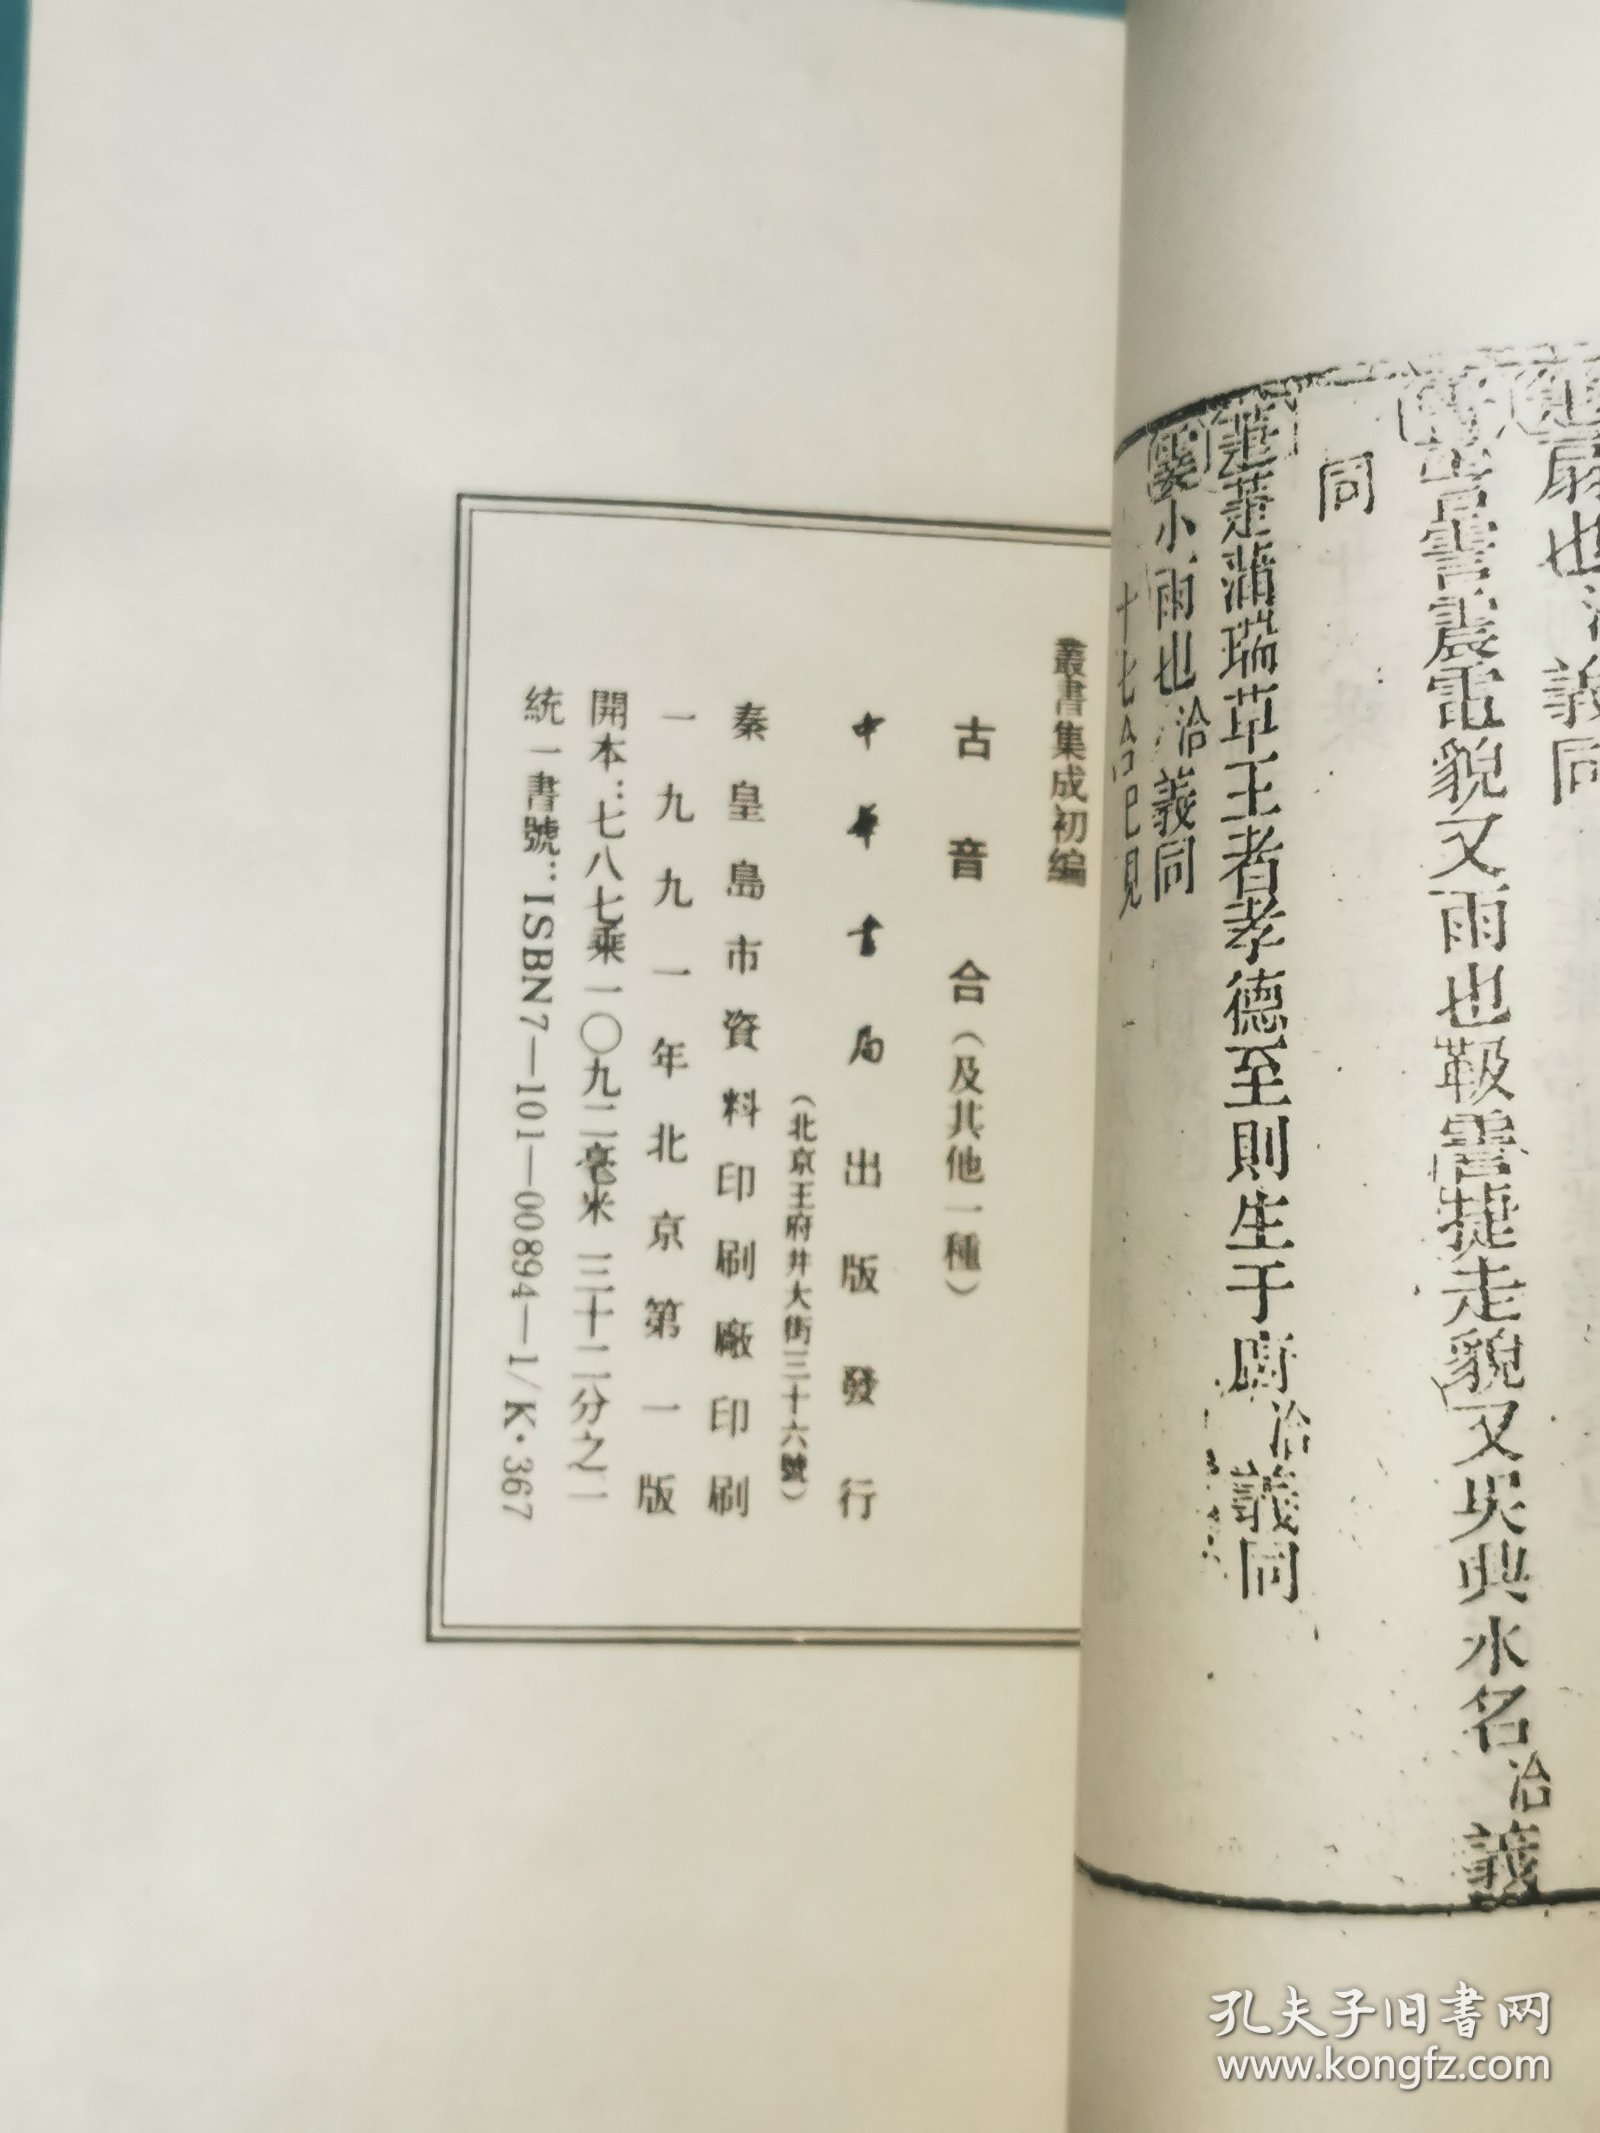 扇也洽義同
霅霅震電貌又雨也靸霅揵走貌又吳興水名洽義
同
萐萐莆瑞草王者孝德至則生于廚洽義同
霎小雨也洽義同
十七合已見
叢書集成初編
古音合（及其他一種）
中華書局出版發行
（北京王府井大街三十六號）
秦皇島市資料印刷廠印刷
一九九一年北京第一版
開本：七八七乘一〇九二毫米 三十二分之一
統一書號：ISBN7—101—00894—1/K·367
孔夫子旧书网
www.kongfz.com